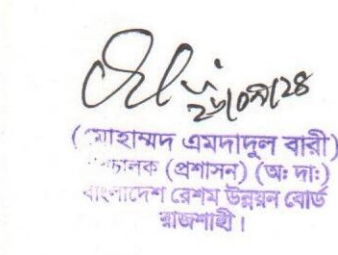 ২৮/০৭/২৪
(মোহাম্মদ এমদাদুল বারী)
পরিচালক (প্রশাসন) (অঃ দাঃ)
বাংলাদেশ রেশম উন্নয়ন বোর্ড
রাজশাহী।